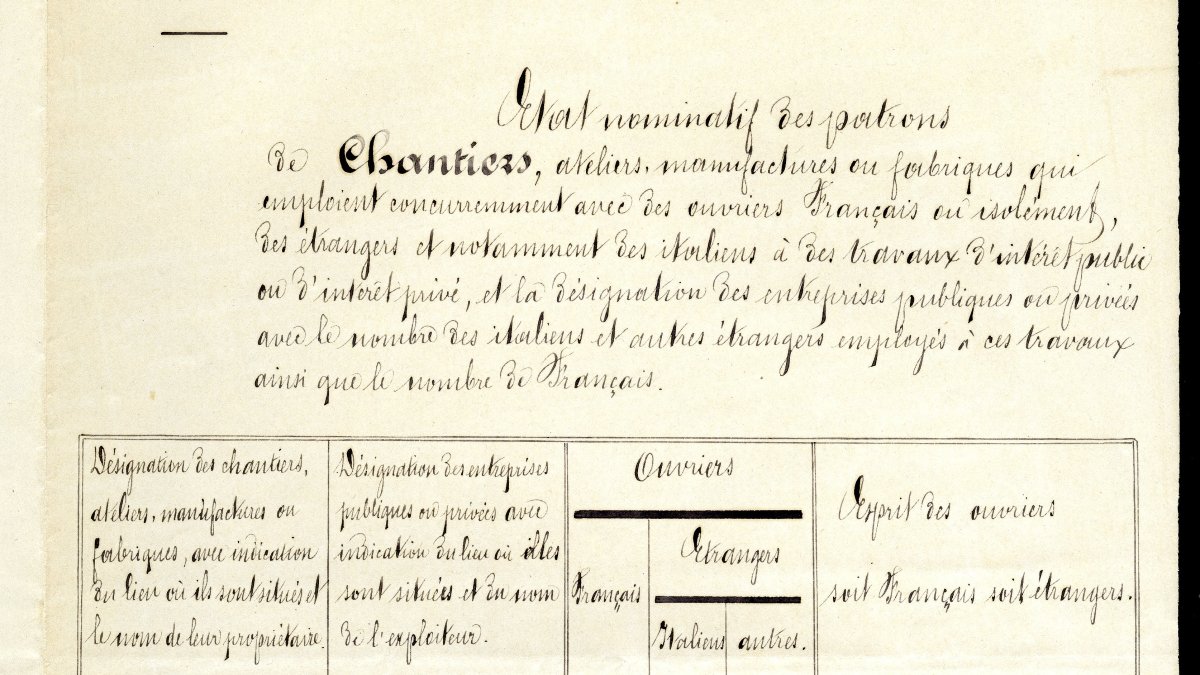 Etat nominatif des patrons
de Chantiers, ateliers, manufactures ou fabriques qui
emploient concurremment avec des ouvriers Français ou isolément,
des étrangers et notamment des italiens à des travaux d'intérêt public
ou d'intérêt privé, et la désignation des entreprises publiques ou privées
avec le nombre des italiens et autres étrangers employés à ces travaux
ainsi que le nombre de Français.
Désignation des chantiers,
ateliers, manufactures ou
fabriques, avec indication
du lieu où ils sont situés et
le nom de leur propriétaire.
Désignation des entreprises
publiques ou privées avec
indication du lieu où elles
sont situées et du nom
de l'exploiteur.
Ouvriers
Français
Etrangers
Italiens
autres.
Esprit des ouvriers
soit Français soit étrangers.